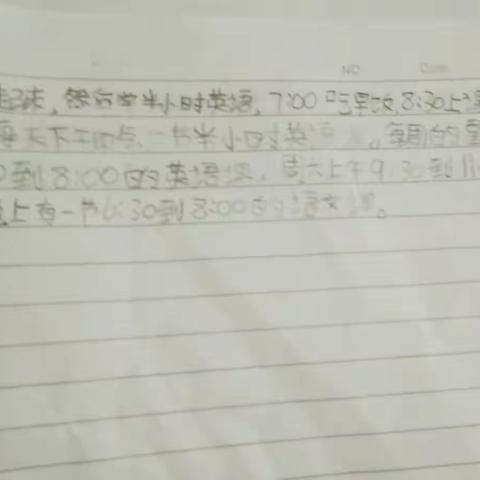 NO Date
起床,然后学半小时英语,7:00吃早饭,8:30上
每天下午四点 一节半小时英语 。每周的星
到8:00的英语课,周六上午9:30到11
上有一节6:30到8:00的语文课。